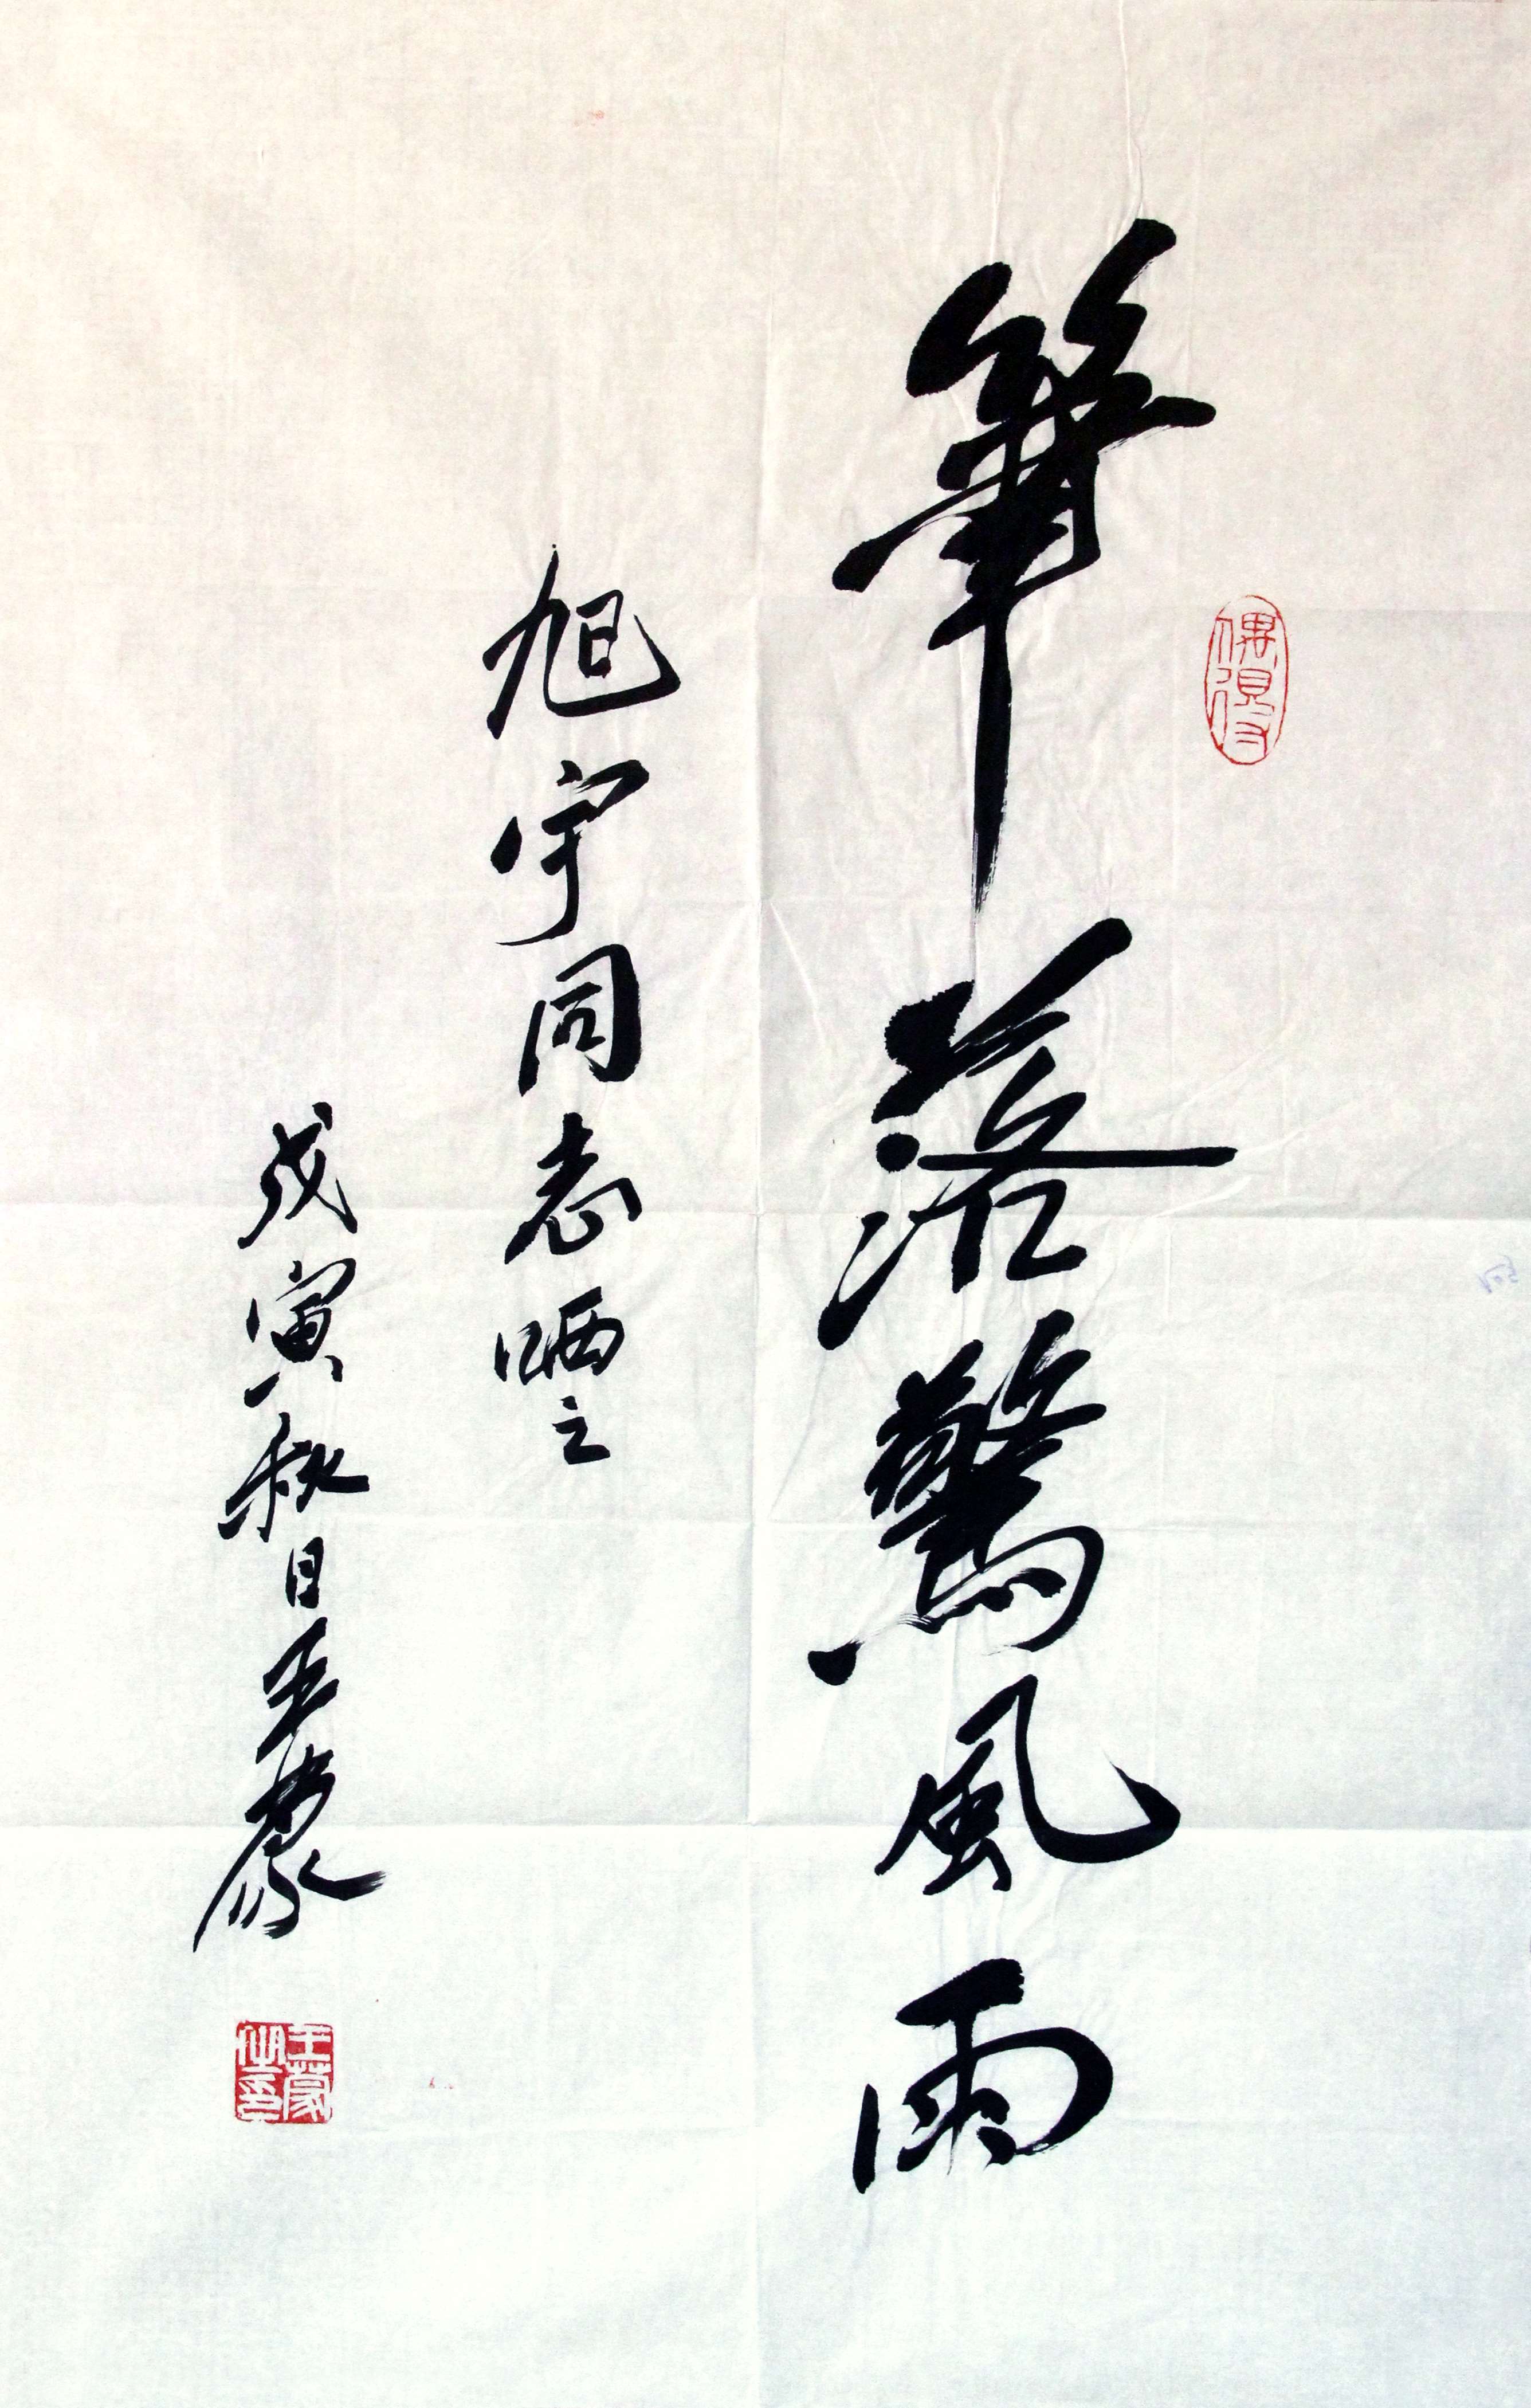 筆落驚風雨
偶得
旭宇同志哂之
戊寅秋日王蒙
王蒙之印